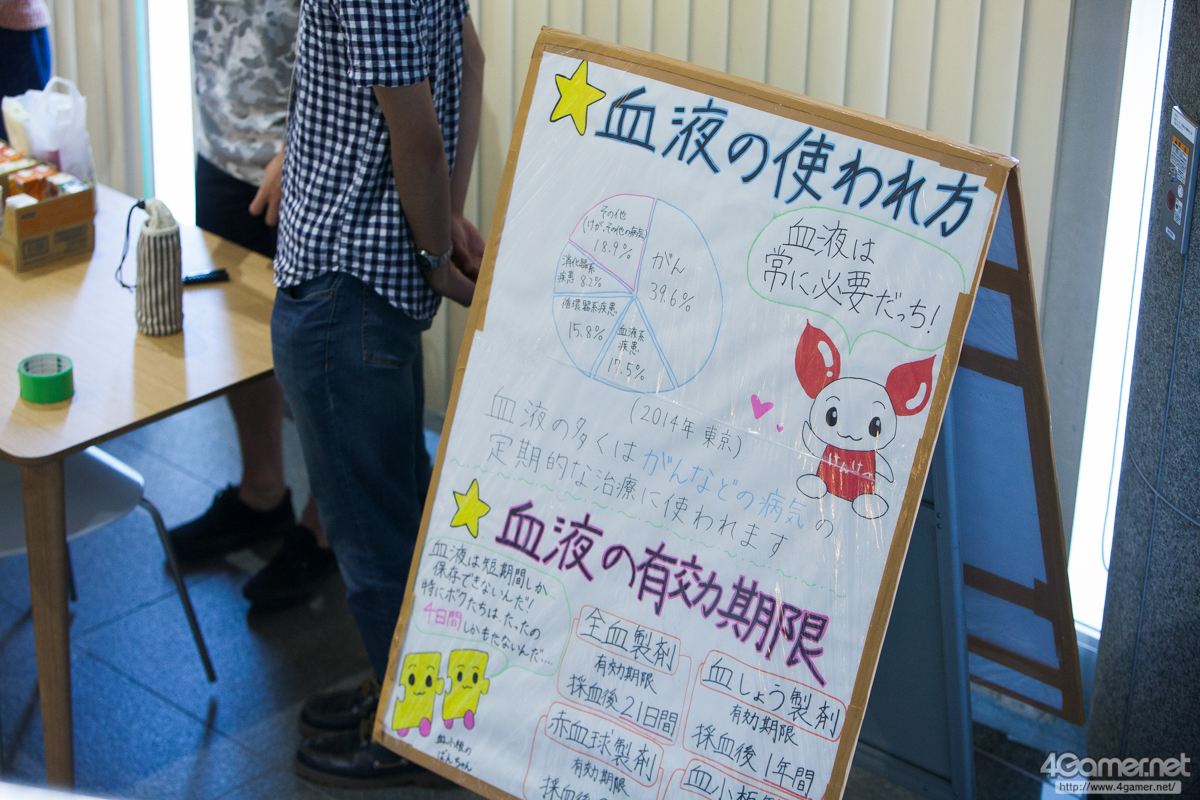 血液の使われ方
その他
(けが、その他の病気)
18.9%
消化器系
疾患 8.2%
循環器系疾患
15.8%
血液系
疾患
17.5%
がん
39.6%
(2014年 東京)
血液は
常に必要だっち!
けんけつ
血液の多くはがんなどの病気の
定期的な治療に使われます
血液の有効期限
血液は短期間しか
保存できないんだ!
特にボクたちは、たったの
4日間しかもたないんだ…
血小板の
ばんちゃん
全血製剤
有効期限
採血後21日間
血しょう製剤
有効期限
採血後1年間
赤血球製剤
有効期限
採血後
血小板
4Gamer.net
http://www.4gamer.net/